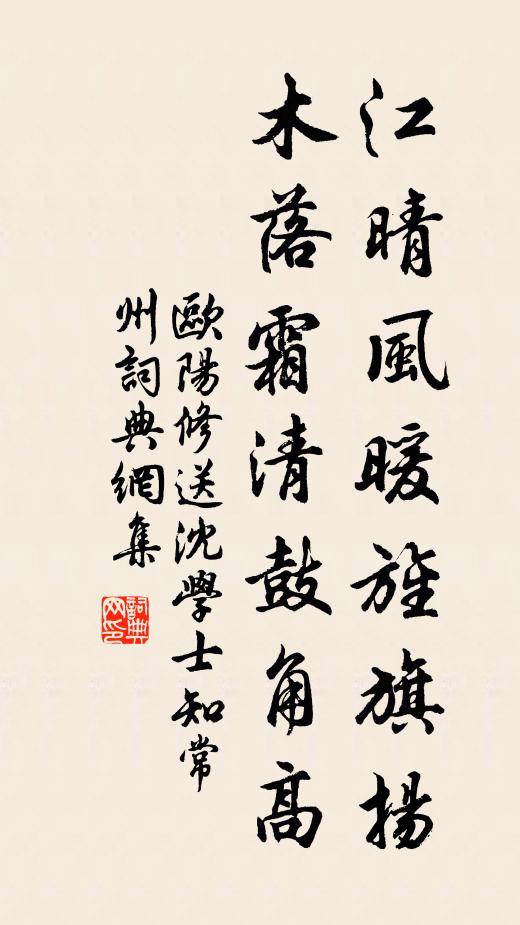 江晴風暖旌旗揚
木落霜清鼓角高
歐陽修送沈學士知常
州詞典網集
詞典
网印